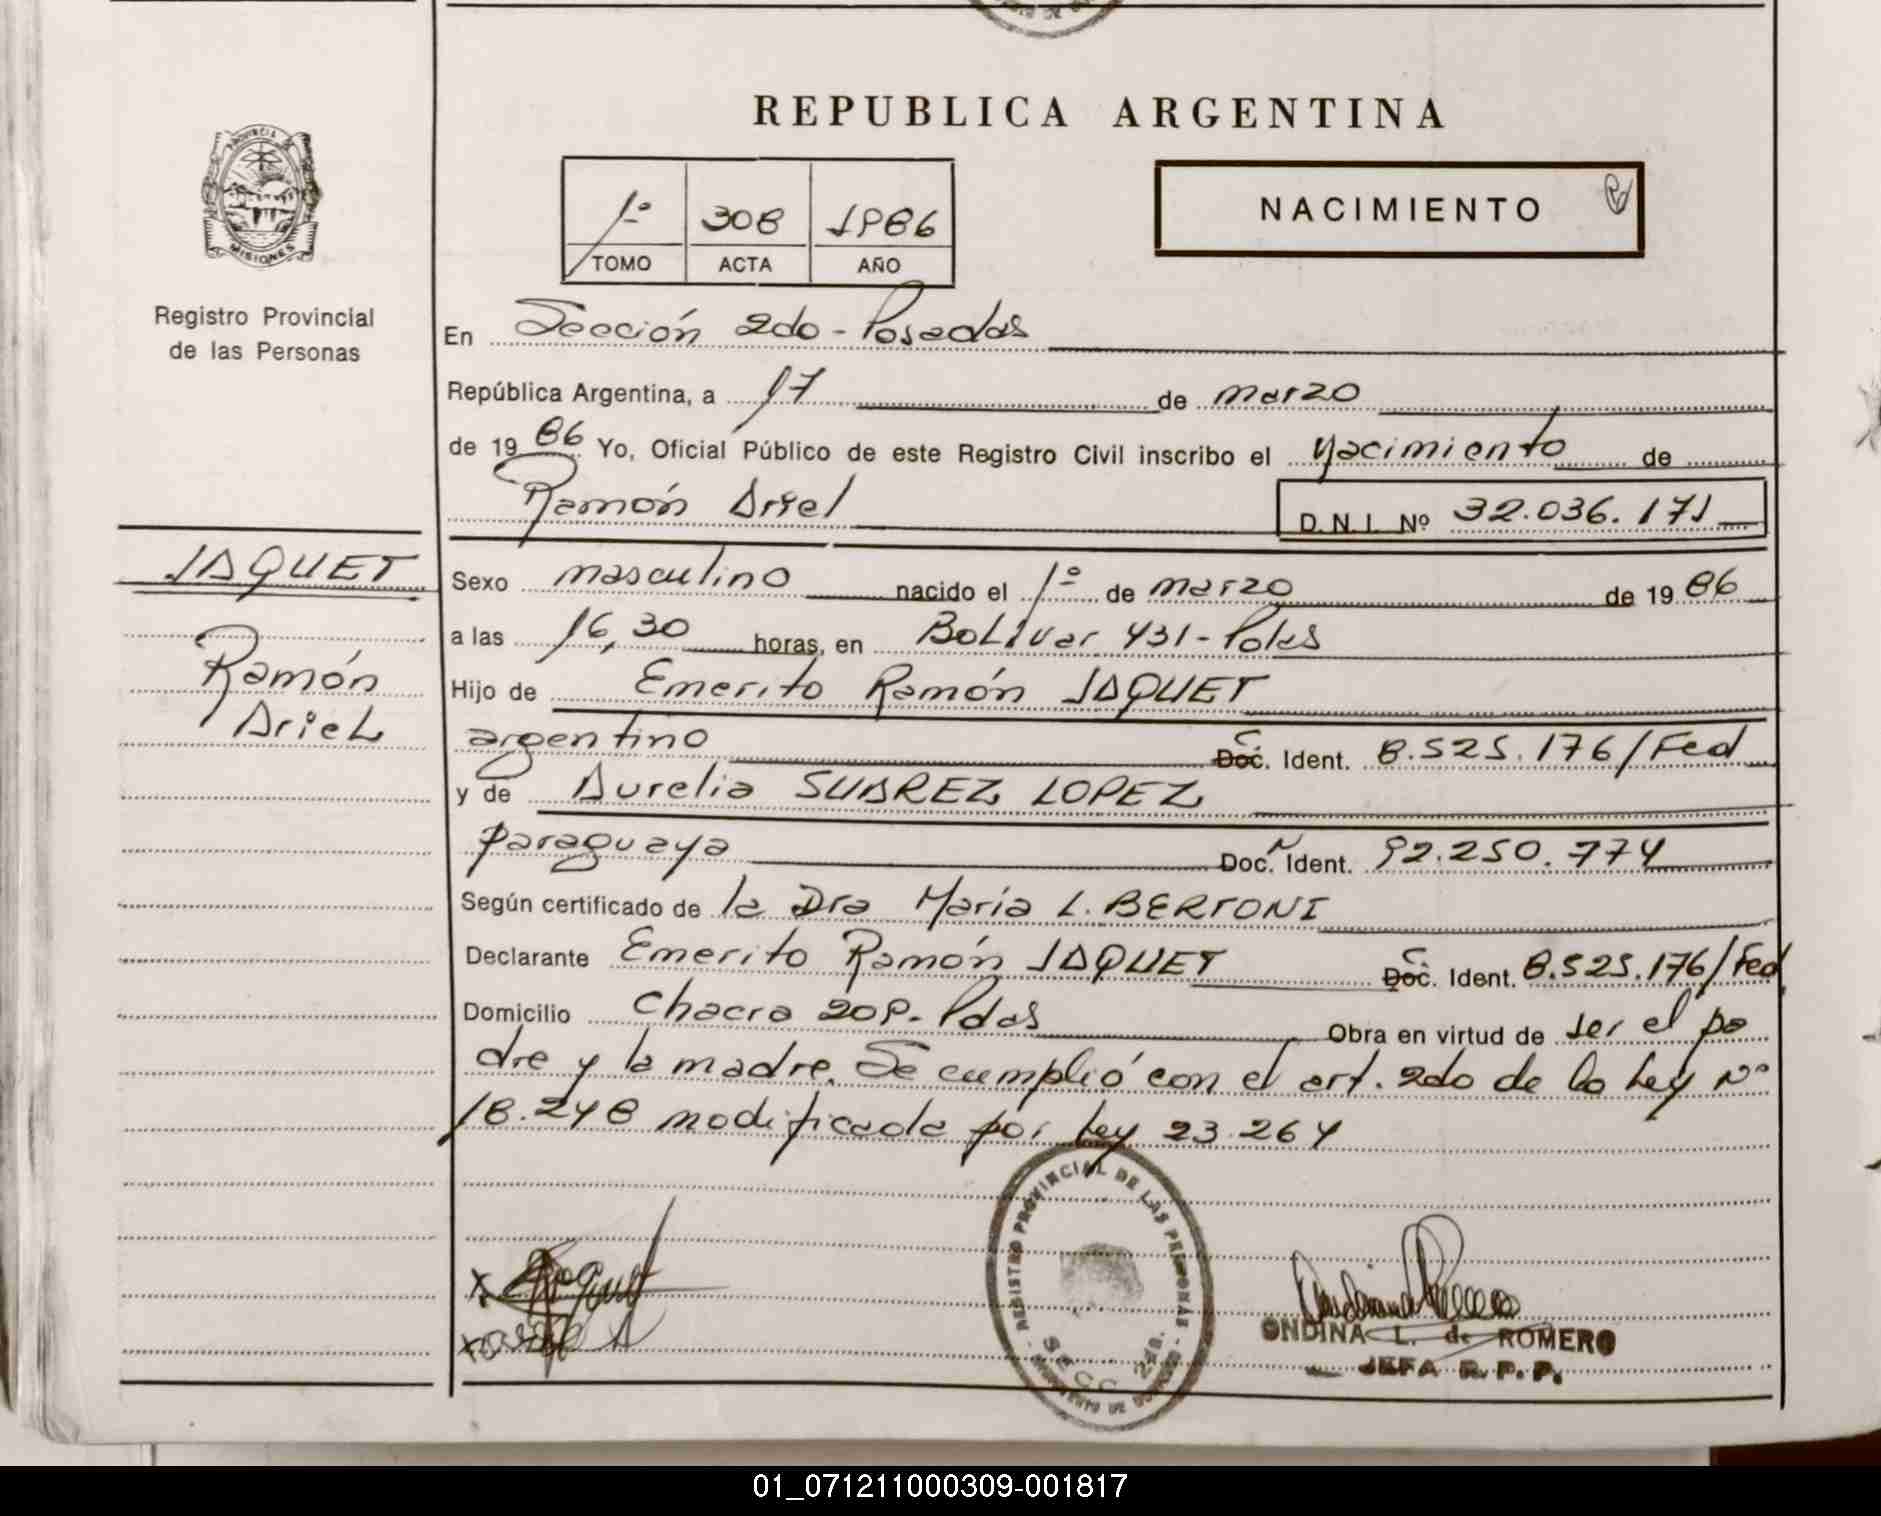 REPUBLICA ARGENTINA
PROVINCIA DE
MISIONES
Registro Provincial
de las Personas
1º 308 1986
TOMO ACTA AÑO
NACIMIENTO
En Sección 2do - Posadas
República Argentina, a 17 de marzo
de 1986 Yo, Oficial Público de este Registro Civil inscribo el Nacimiento de
Ramón Ariel D.N.I. Nº 32.036.171
JAQUET
Ramón
Ariel
Sexo masculino nacido el 1º de marzo de 1986
a las 16,30 horas, en Bolívar 431 - Pdas
Hijo de Emerito Ramón JAQUET
argentino C. Doc. Ident. 8.525.176/Fed
y de Aurelia SUAREZ LOPEZ
paraguaya Doc. Ident. 92.250.774
Según certificado de la Dra María L. BERTONI
Declarante Emerito Ramón JAQUET C. Doc. Ident. 8.525.176/Fed
Domicilio Chacra 209 - Pdas Obra en virtud de ser el pa
dre y la madre. Se cumplió con el art. 2do de la Ley Nº
18.248 modificada por Ley 23.264
REGISTRO PROVINCIAL DE LAS PERSONAS
SECC. 2da.
ONDINA L. de ROMERO
JEFA R.P.P.
01_071211000309-001817